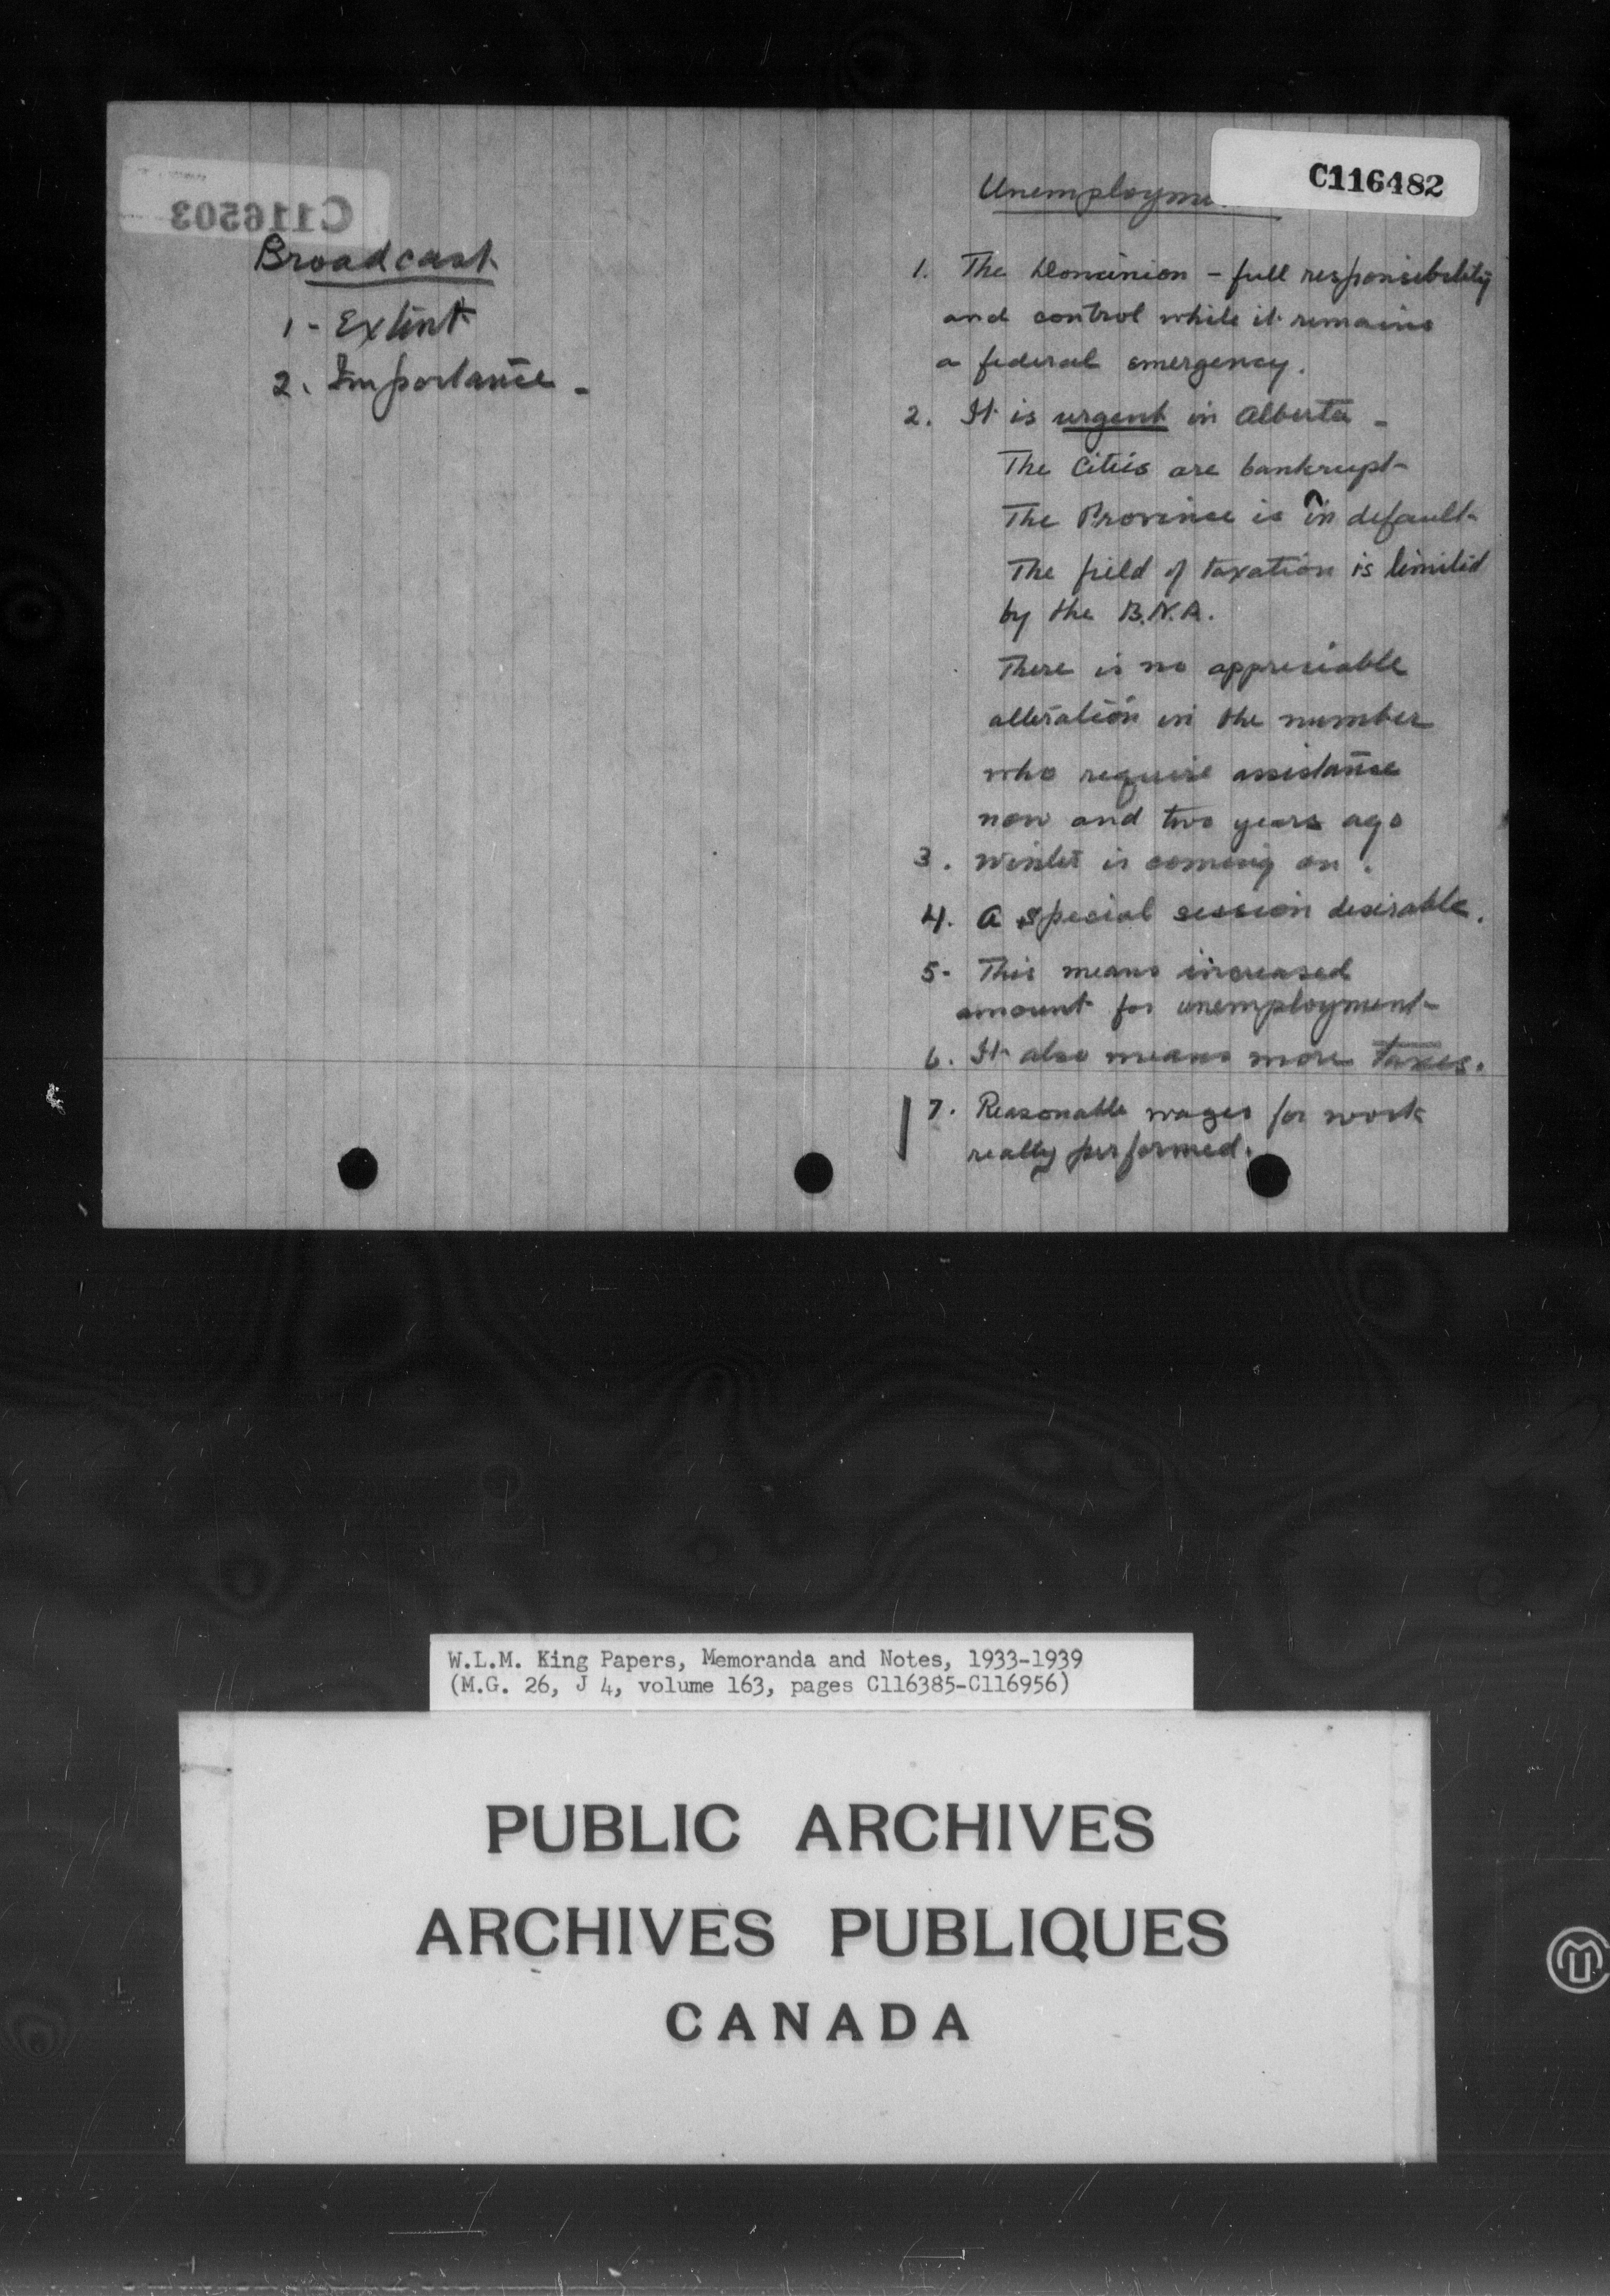 C116503
Broadcast
1 - Extent
2. Importance -
C116482
Unemployme
1. The Dominion - full responsibility
and control while it remains
a federal emergency.
2. It is urgent in Alberta -
The Cities are bankrupt -
The Province is in default -
The field of taxation is limited
by the B.N.A.
There is no appreciable
alteration in the number
who require assistance
now and two years ago
3. Winter is coming on.
4. A special session desirable.
5- This means increased
amount for unemployment -
6. It also means more taxes.
7. Reasonable wages for work
really performed.
W.L.M. King Papers, Memoranda and Notes, 1933-1939
(M.G. 26, J 4, volume 163, pages C116385-C116956)
PUBLIC ARCHIVES
ARCHIVES PUBLIQUES
CANADA